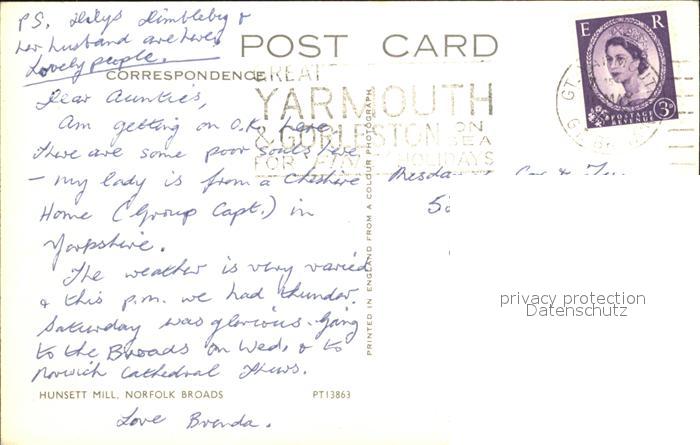 PS. Dilys Dimbleby &
her husband are here
Lovely people.
POST CARD
E R
POSTAGE
REVENUE
3D
CORRESPONDENCE
GREAT
YARMOUTH
& GORLESTON ON
SEA
FOR HOLIDAYS
Dear Aunties,
Am getting on O.K. here
There are some poor souls here
– my lady is from a Cheshire
Home (Group Capt.) in
Yorpshire.
The weather is very varied
& this p.m. we had thunder.
Saturday was glorious. Going
to the Broads on Wed. & to
Norwich Cathedral Thurs.
HUNSETT MILL, NORFOLK BROADS PT13863
Love Brenda.
PRINTED IN ENGLAND FROM A COLOUR PHOTOGRAPH
Mesda
privacy protection
Datenschutz